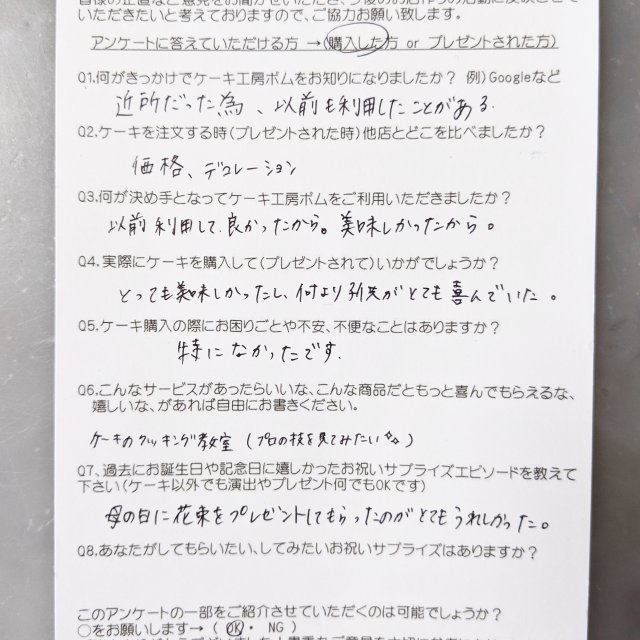 いただきたいと考えておりますので、ご協力お願い致します。
アンケートに答えていただける方 →(購入した方 or プレゼントされた方)
Q1.何がきっかけでケーキ工房ボムをお知りになりましたか? 例)Googleなど
近所だった為、以前も利用したことがある.
Q2.ケーキを注文する時(プレゼントされた時)他店とどこを比べましたか?
価格、デコレーション
Q3.何が決め手となってケーキ工房ボムをご利用いただきましたか?
以前利用して、良かったから。美味しかったから。
Q4.実際にケーキを購入して(プレゼントされて)いかがでしょうか?
とっても美味しかったし、何より がとても喜んでいた。
Q5.ケーキ購入の際にお困りごとや不安、不便なことはありますか?
特になかったです.
Q6.こんなサービスがあったらいいな、こんな商品だともっと喜んでもらえるな、
嬉しいな、があれば自由にお書きください。
ケーキのクッキング教室 (プロの技を見てみたい✨)
Q7、過去にお誕生日や記念日に嬉しかったお祝いサプライズエピソードを教えて
下さい(ケーキ以外でも演出やプレゼント何でもOKです)
母の日に花束をプレゼントしてもらったのがとてもうれしかった。
Q8.あなたがしてもらいたい、してみたいお祝いサプライズはありますか?
このアンケートの一部をご紹介させていただくのは可能でしょうか?
○をお願いします→( OK・ NG )